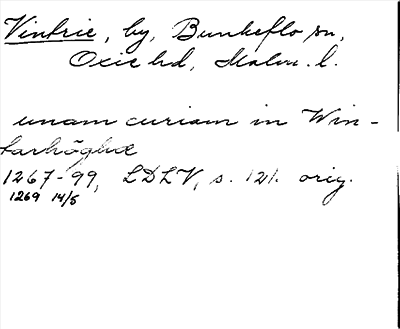 Vintrie, by, Bunkeflo sn,
Oxie hd, Malm. l.
unam curiam in Win-
tarhöghæ
1267-99, LDLV, s. 121. orig.
1269 14/5